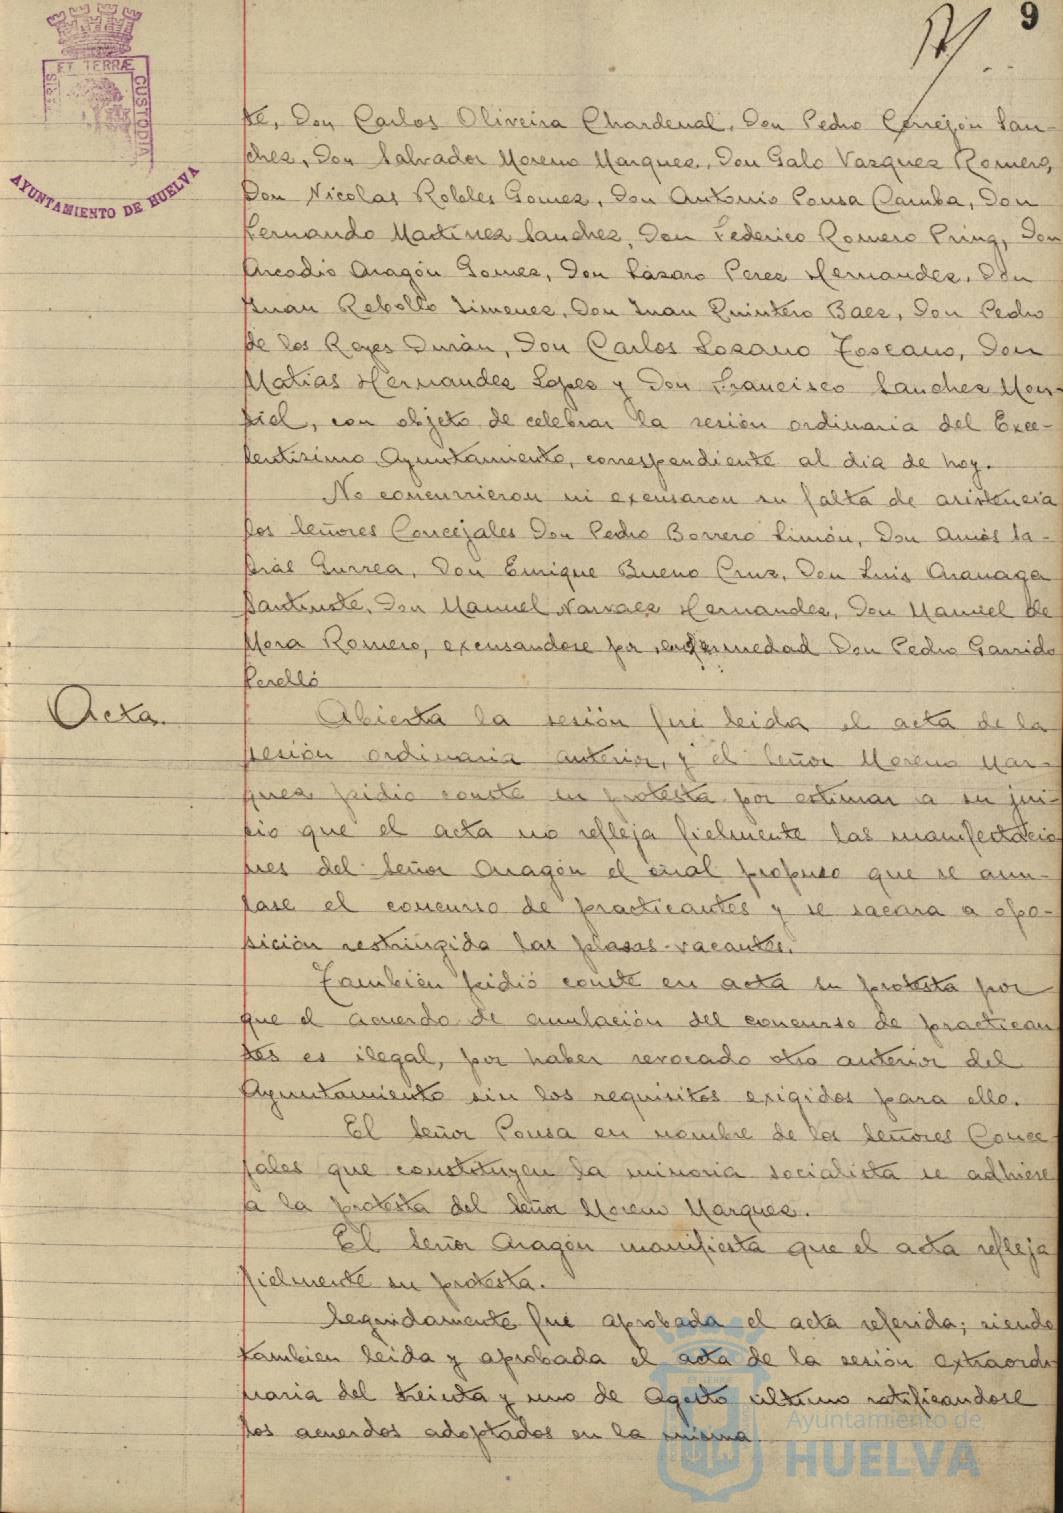 9
ET TERRÆ
CUSTODIA
AYUNTAMIENTO DE HUELVA
te, Don Carlos Oliveira Chardenal, Don Pedro Cerrejón San-
chez, Don Salvador Moreno Marquez, Don Galo Vazquez Romero,
Don Nicolas Robles Gomez, Don Antonio Pousa Camba, Don
Fernando Martinez Sanchez, Don Federico Romero Pring, Don
Arcadio Aragón Gomez, Don Lázaro Perez Hernandez, Don
Juan Rebollo Jimenez, Don Juan Quintero Baez, Don Pedro
de los Reyes Durán, Don Carlos Lozano Toscano, Don
Matias Hernandez Lopez y Don Francisco Sanchez Mon-
tiel, con objeto de celebrar la sesión ordinaria del Exce-
lentisimo Ayuntamiento, correspondiente al dia de hoy.
No concurrieron ni excusaron su falta de asistencia
los Señores Concejales Don Pedro Borrero Limón, Don Amós Sa-
brás Gurrea, Don Enrique Bueno Cruz, Don Luis Aranaga
Santurste, Don Manuel Narvaez Hernandez, Don Manuel de
Mora Romero, excusandose por enfermedad Don Pedro Garrido
Perelló
Acta.
Abierta la sesión fué leida el acta de la
sesión ordinaria anterior, y el Señor Moreno Mar-
quez pidió conste su protesta por estimar a su jui-
cio que el acta no refleja fielmente las manifestacio
nes del Señor Aragón el cual propuso que se anu-
lase el concurso de practicantes y se sacara a opo-
sición restringida las plazas vacantes.
También pidió conste en acta su protesta por
que el acuerdo de anulación del concurso de practican
tes es ilegal, por haber revocado otro anterior del
Ayuntamiento sin los requisitos exigidos para ello.
El Señor Pousa en nombre de los Señores Conce
jales que constituyen la minoria socialista se adhiere
a la protesta del Señor Moreno Marquez.
El Señor Aragón manifiesta que el acta refleja
fielmente su protesta.
Seguidamente fué aprobada el acta referida; siendo
tambien leida y aprobada el acta de la sesión extraordi
naria del treinta y uno de Agosto último ratificandose
los acuerdos adoptados en la misma
Ayuntamiento de
HUELVA